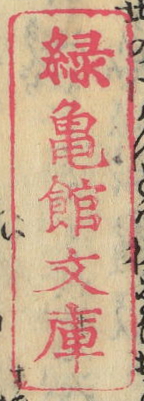 緑亀館文庫